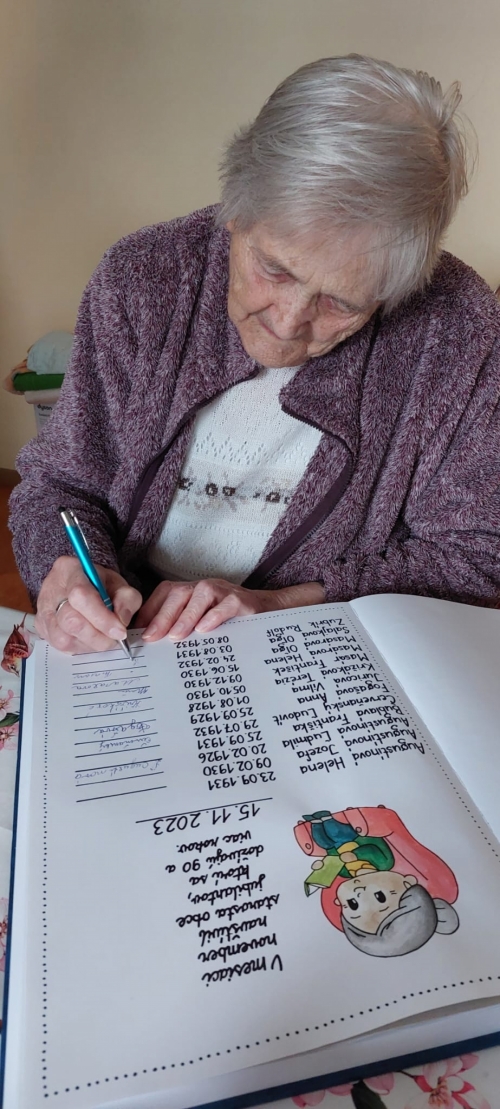 V mesiaci
november
navštívil
starosta obce
jubilantov,
ktorí sa
dožívajú 90 a
viac rokov.
15.11.2023
Augustínová Helena 23.09.1931
Augustínová Jozefa 09.02.1930
Augustínová Ľudmila 20.02.1926
Františka 25.09.1931
Ľudovít 29.07.1932
Fogašová Anna 25.09.1929
Juricová Vilma 01.08.1928
Terézia 05.10.1930
Masár František 09.12.1930
Masárová Helena 15.06.1930
Masárová Oľga 24.02.1932
Salajková Oľga 03.08.1931
Zubrík Rudolf 08.05.1932